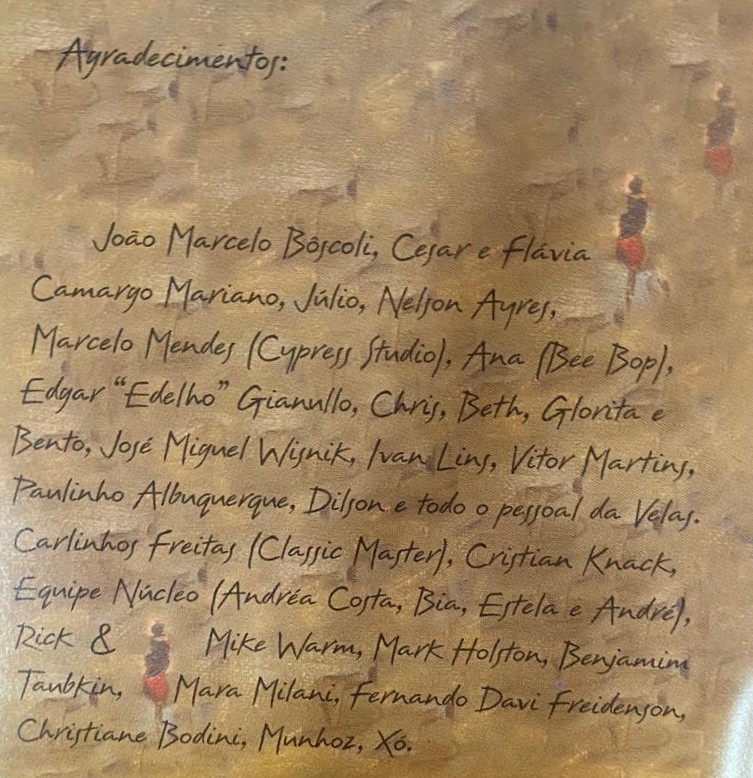 Agradecimentos:
João Marcelo Bôscoli, Cesar e Flávia
Camargo Mariano, Júlio, Nelson Ayres,
Marcelo Mendes (Cypress Studio), Ana (Bee Bop),
Edgar “Edelho” Gianullo, Chris, Beth, Glorita e
Bento, José Miguel Wisnik, Ivan Lins, Vitor Martins,
Paulinho Albuquerque, Dilson e todo o pessoal da Velas.
Carlinhos Freitas (Classic Master), Cristian Knack,
Equipe Núcleo (Andréa Costa, Bia, Estela e André),
Rick & Mike Warm, Mark Holston, Benjamim
Taubkin, Mara Milani, Fernando Davi Freidenson,
Christiane Bodini, Munhoz, Xó.